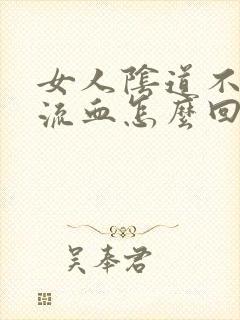 女人陰道不
流血怎麼回
吴奉君